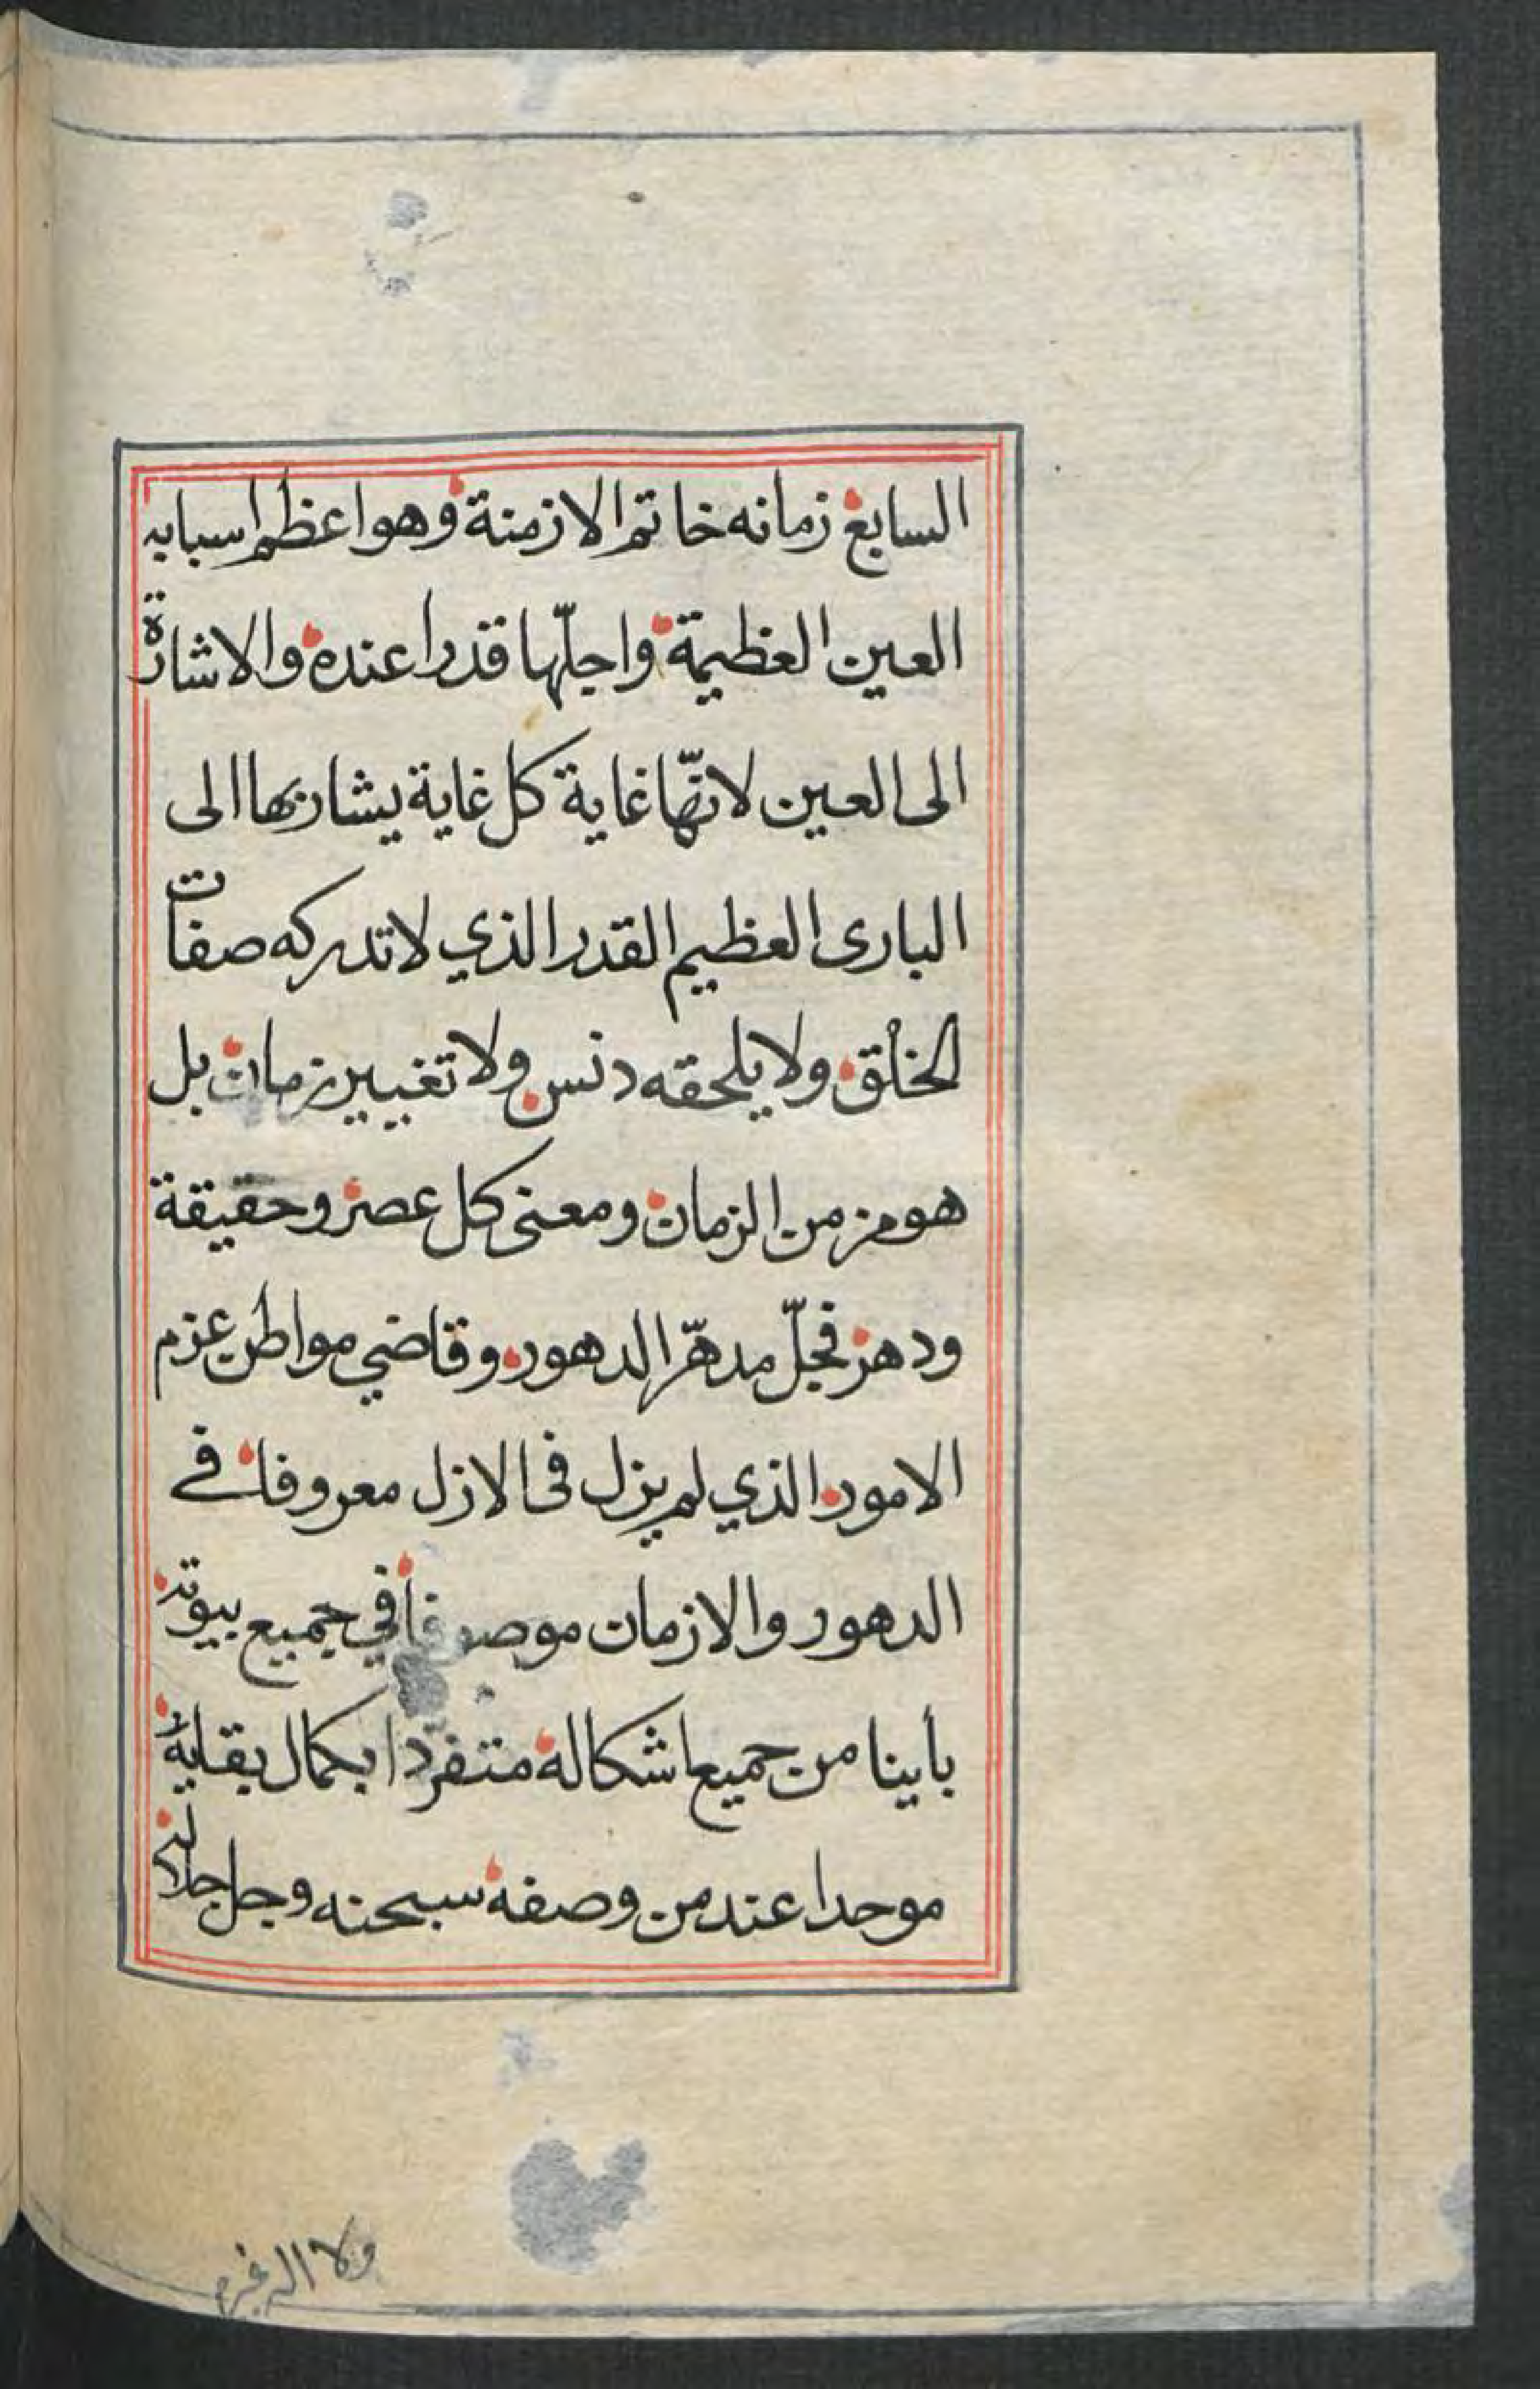 السابع زمانه خاتم الازمنة وهو اعظم اسبابه
العين العظيمة واجلّها قدرا عنده والاشارة
الى العين لانّها غاية كل غاية يشار بها الى
البارى العظيم القدر الذي لا تدركه صفات
الخلق ولا يلحقه دنس ولا تغيير زمان بل
هو مزمن الزمان ومعنى كل عصر وحقيقة
ودهر فجلّ مدهّر الدهور وقاضي مواطن عزم
الامور الذي لم يزل فى الازل معروفا في
الدهور والازمان موصوفا في جميع بيوته
بأينا من جميع اشكاله متفرّدا بكمال بقايه
موحدا عند من وصفه سبحنه وجل جلاله
ولا اله غيره